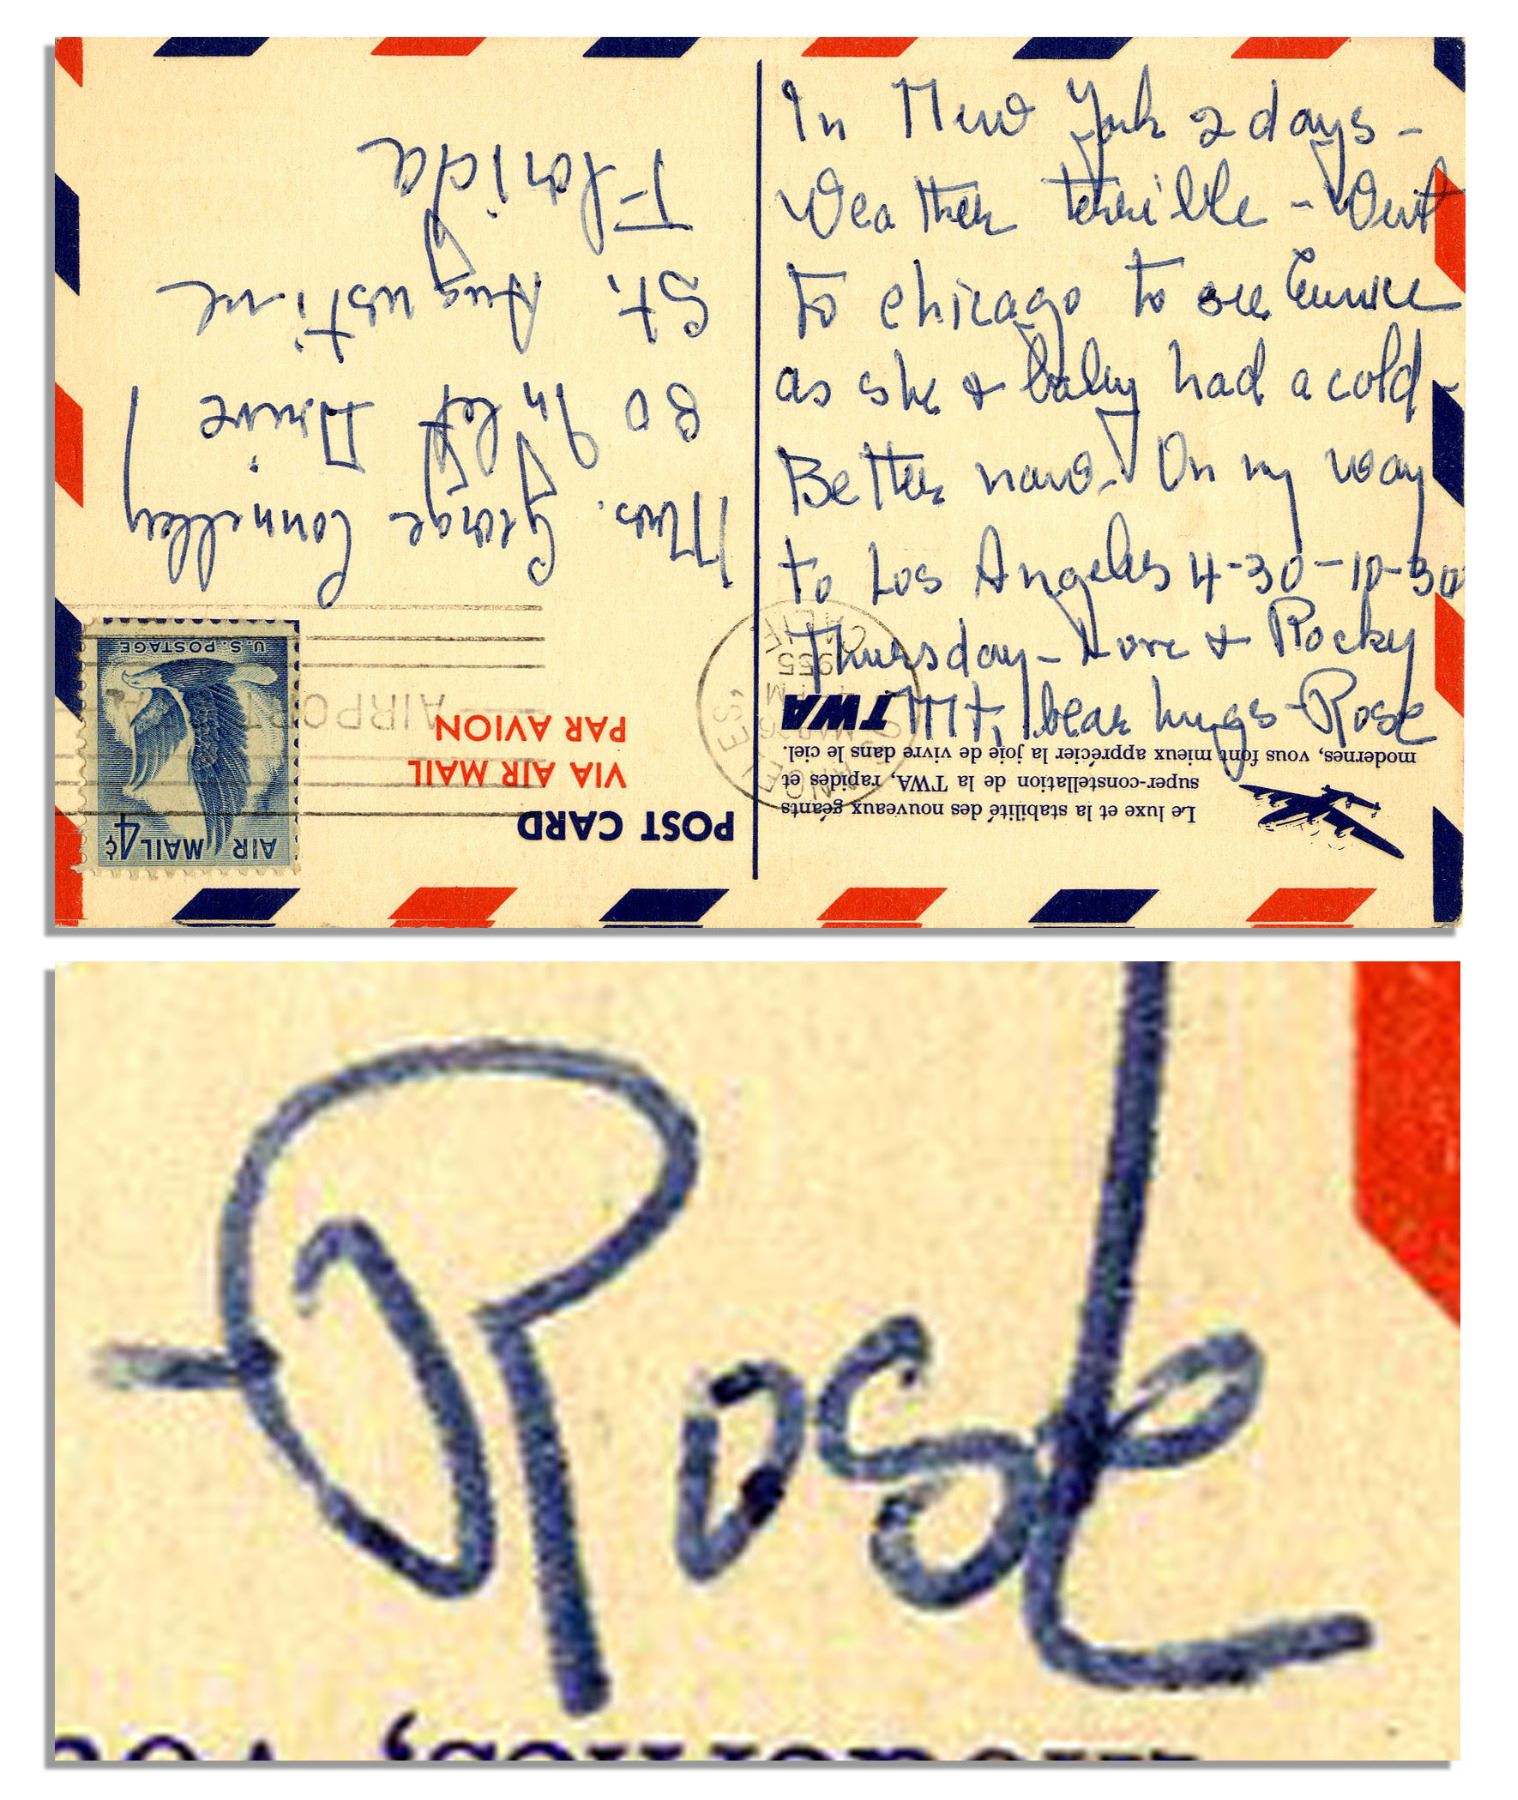 In New York 2 days -
Weather terrible - Went
to chicago to see Eunice
as she & baby had a cold -
Better now. On my way
to Los Angeles 4-30-10-30
Thursday - Love & Rocky
Mt. bear hugs - Rose
TWA
Le luxe et la stabilité des nouveaux géants
super-constellation de la TWA, rapides et
modernes, vous font mieux apprécier la joie de vivre dans le ciel.
POST CARD
VIA AIR MAIL
PAR AVION
AIR MAIL 4¢
U.S. POSTAGE
AIRPORT
LOS ANGELES
MAR
PM
1955
CALIF.
Mrs. George Connelley
80 Inlet Drive
St. Augustine
Florida
Rose